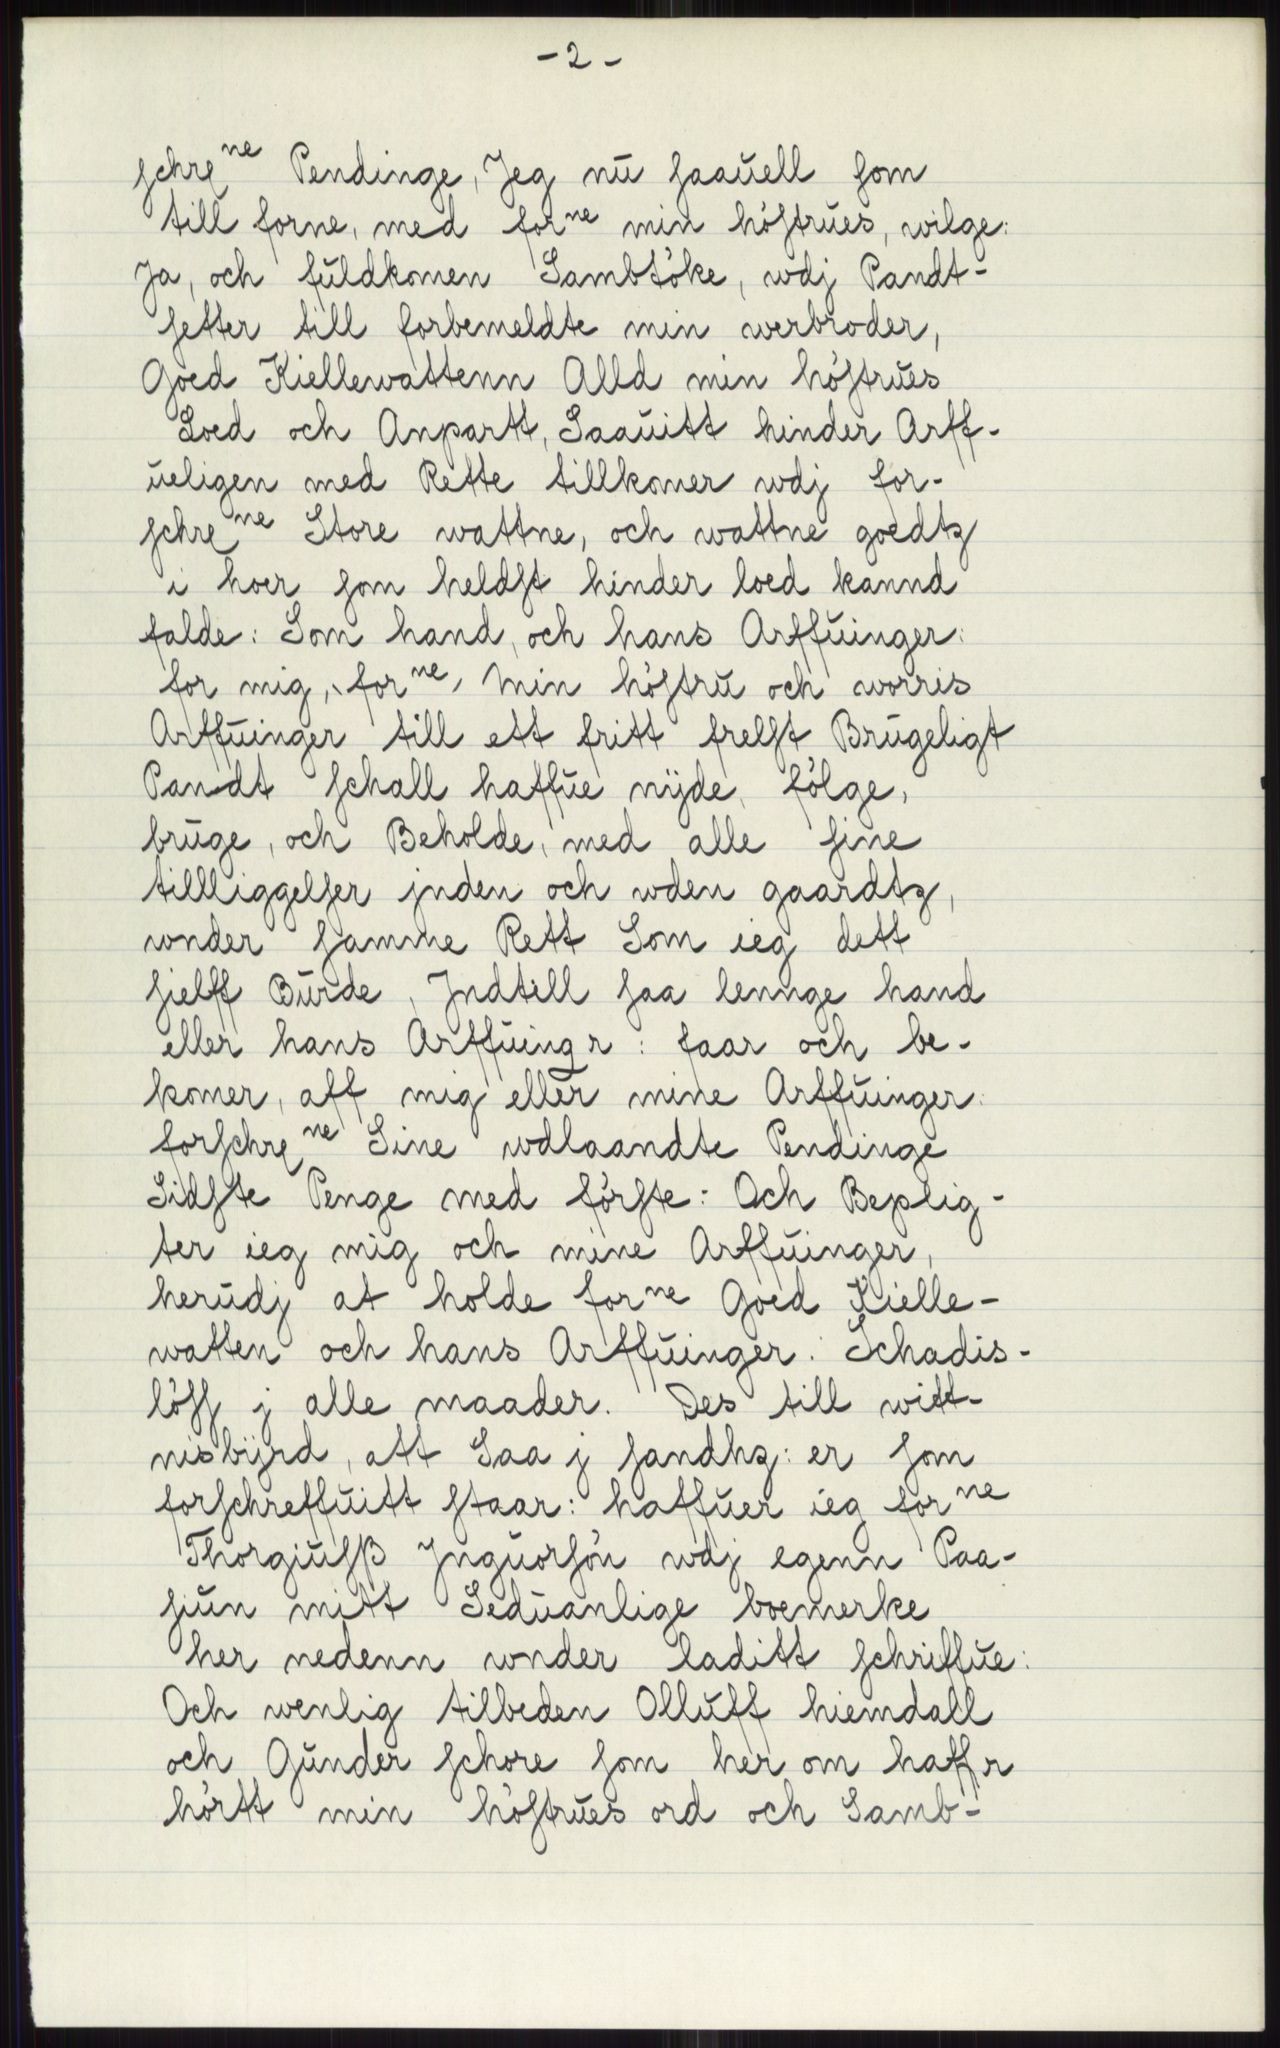 - 2 -
schreⁿᵉ Pendinge, Jeg nū saaūell som
till forne, med forⁿᵉ min höstrūes, wilge:
Ja, och fūldkomen Sambtöke, wdj Pandt-
setter till forbemeldte min werbroder,
Goed Kiellewattenn Alld min höstrūes
Loed och Anpartt, Saaūitt hinder Arff-
ūeligen med Rette tillkomer wdj for-
schreⁿᵉ Store wattne, och wattne goedtz
i hoer som heldst hinder loed kannd
falde: Som hand, och hans Arffūinger:
for mig, forⁿᵉ, Min höstrū och worris
Arffūinger till ett fritt frelst Brūgeligt
Pandt schall haffūe nÿde, fölge,
brūge, och Beholde, med alle sine
tillliggelser jnden och wden gaardtz,
wnder samme Rett Som ieg dett
sielff Būrde, Jndtill saa lennge hand
eller hans Arffūingr: faar och be-
komer, aff mig eller mine Arffūinger:
forschreⁿᵉ Sine wdlaandte Pendinge
Sidste Penge med förste: Och Beplig-
ter ieg mig och mine Arffūinger,
herūdj at holde forⁿᵉ Goed Kielle-
watten och hans Arffūinger: Schadis-
löss j alle maader. Des till witt-
nisbÿrd, att Saa j sandhz: er som
forschreffūitt staar: haffūer ieg forⁿᵉ
Thorgiūlß Jngūorsön wdj egenn Paa-
siūn mitt Sedūanlige boemerke
her nedenn wnder laditt schriffūe:
Och wenlig tilbeden Ollūff hiemdall
och Gūnder schore som her om haffr
hörtt min höstrūes ord och Samb-